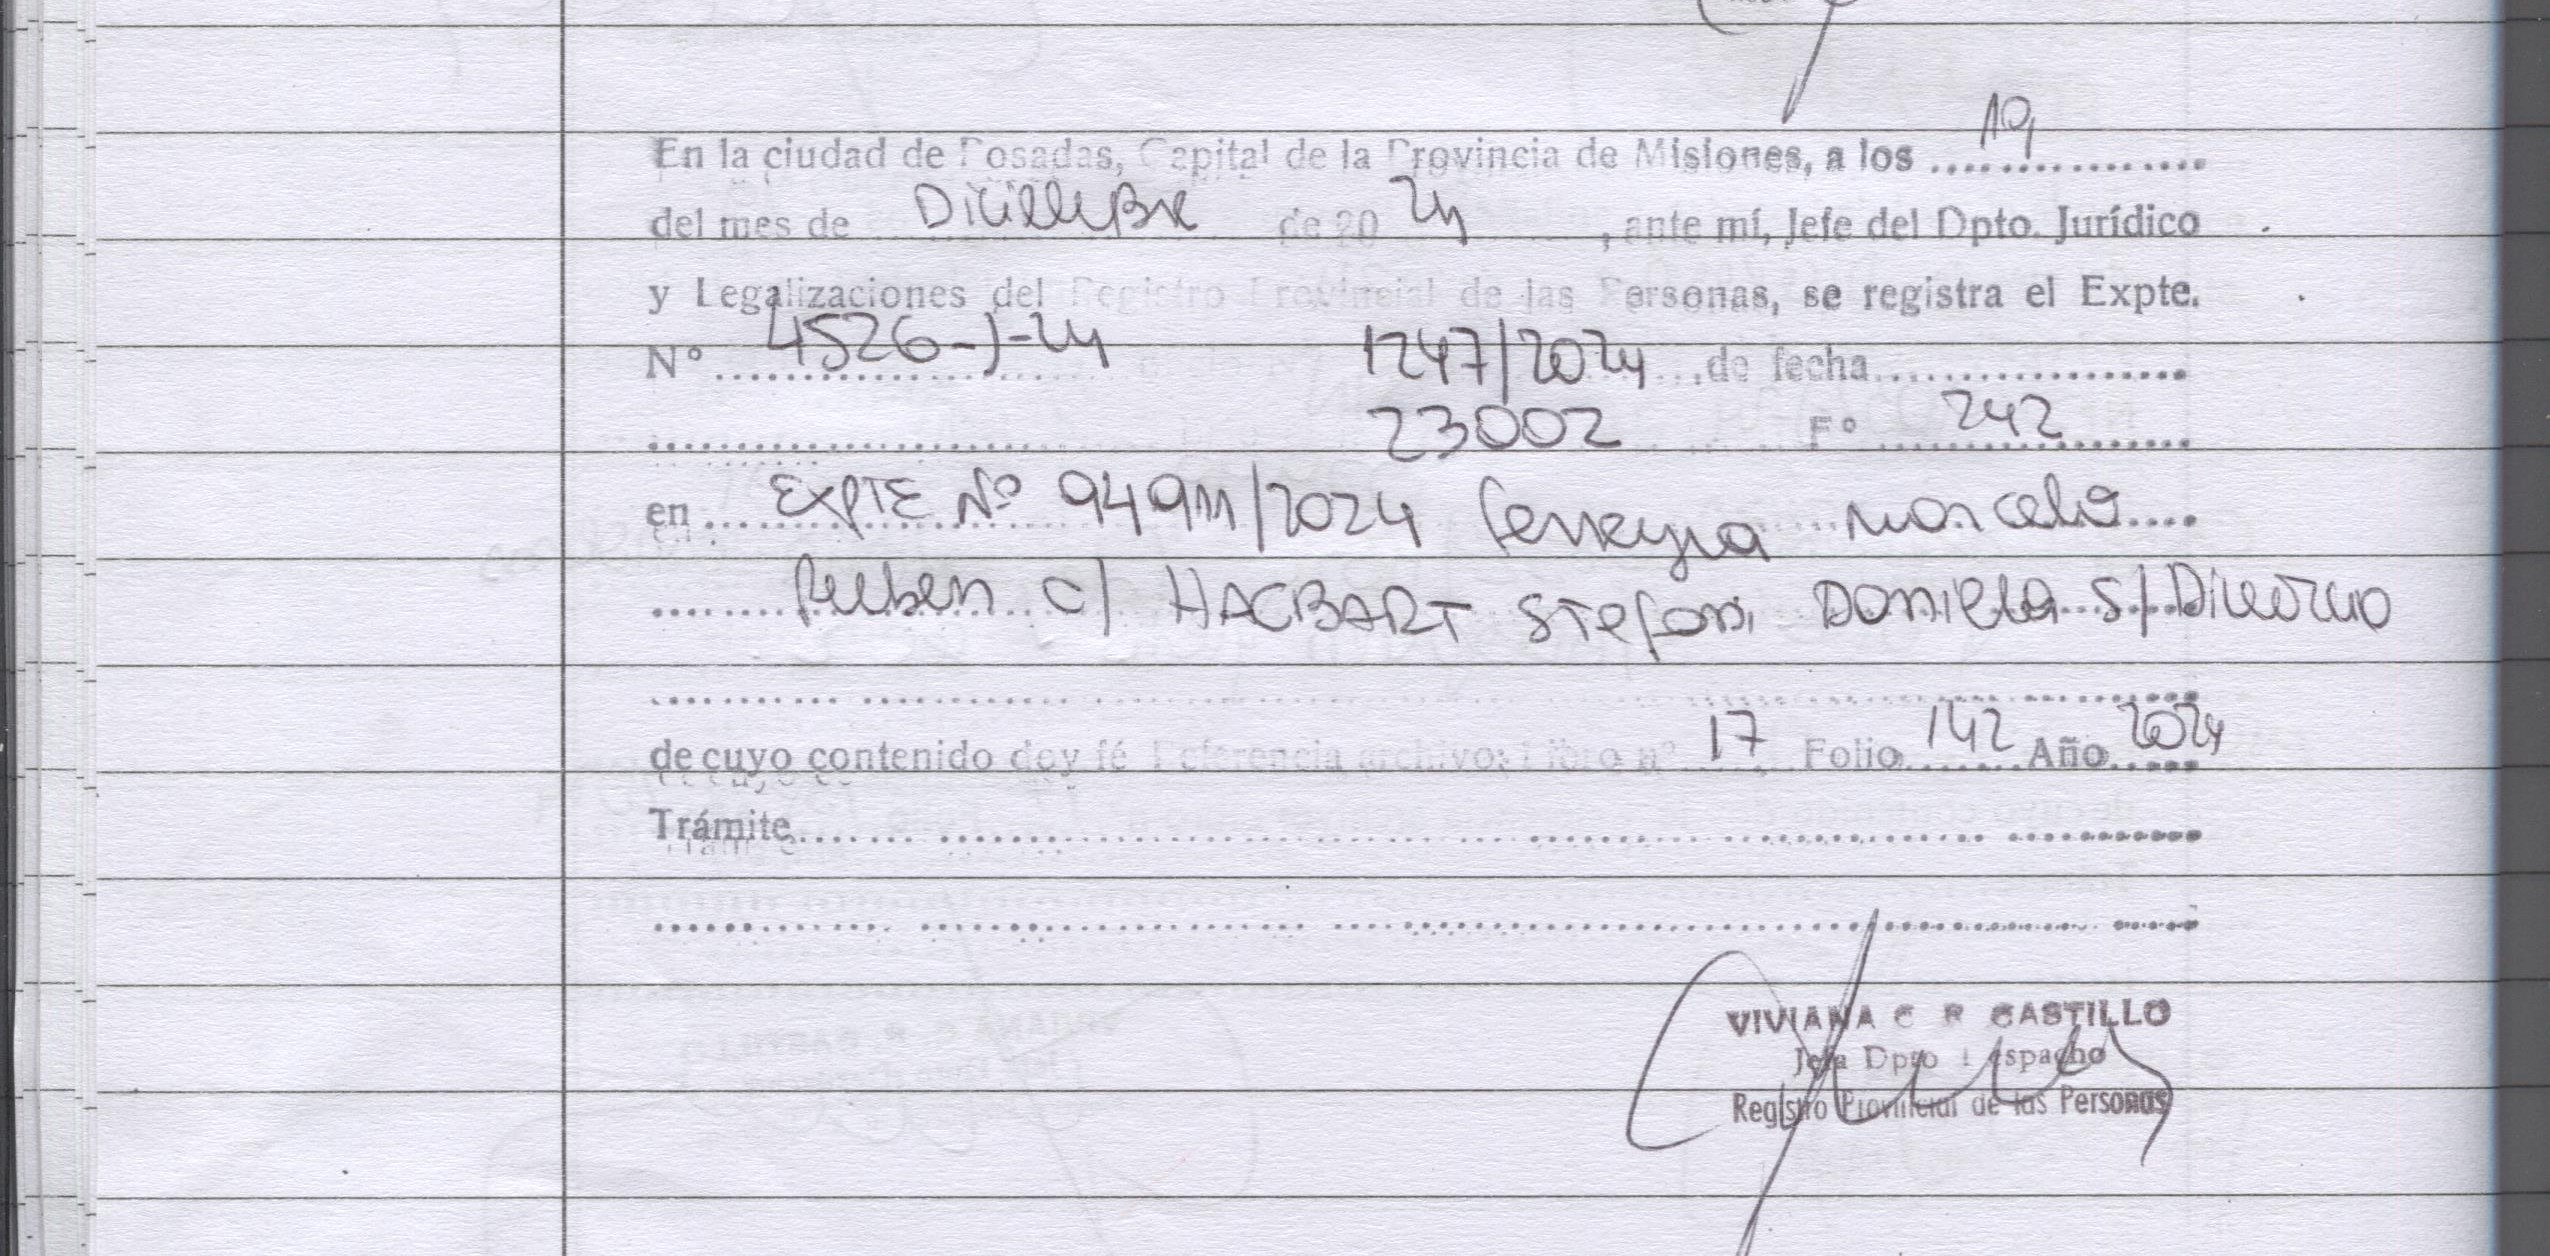 19
En la ciudad de Posadas, Capital de la Provincia de Misiones, a los ................
del mes de Diciembre de 20 24 , ante mí, Jefe del Dpto. Jurídico
y Legalizaciones del Registro Provincial de las Personas, se registra el Expte.
Nº 4526-J-24 1247/2024 de fecha
23002 Fº 242
en EXPTE Nº 94911/2024 Ferreyra Marcelo
Ruben c/ HACBART STefani Daniela S/ Divorcio
de cuyo contenido doy fé Referencia archivo: Libro nº 17 Folio 142 Año 2024
Trámite
VIVIANA C R CASTILLO
Jefa Dpto Despacho
Registro Provincial de las Personas